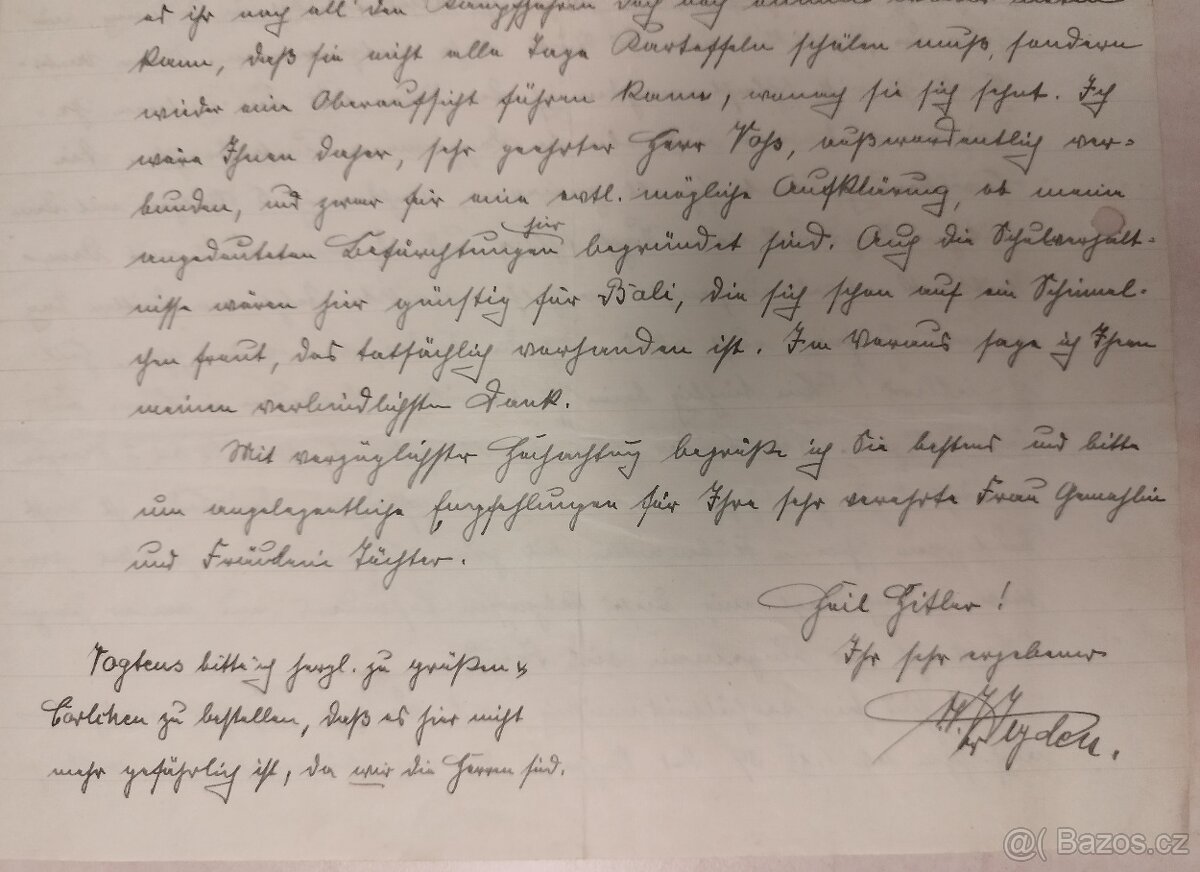 es ihr nach all' den Kampfjahren doch noch einmal
kann, daß sie nicht alle Tage Kartoffeln schälen muß, sondern
wieder eine Oberaufsicht führen kann, wonach sie sich sehnt. Ich
wäre Ihnen daher, sehr geehrter Herr Voß, außerordentlich ver-
bunden, und zwar für eine evtl. mögliche Aufklärung, ob meine
angedeuteten Befürchtungen hier begründet sind. Auch die Schulverhält-
nisse wären hier günstig für Bali, die sich schon auf ein Schimmel-
chen freut, das tatsächlich vorhanden ist. Im Voraus sage ich Ihnen
meinen verbindlichsten Dank.
Mit vorzüglichster Hochachtung begrüße ich Sie bestens und bitte
um angelegentliche Empfehlungen für Ihre sehr verehrte Frau Gemahlin
und Fräulein Töchter.
Heil Hitler!
Ihr sehr ergebener
Vogtens bitte ich herzl. zu grüßen &
Carlchen zu bestellen, daß es hier nicht
mehr gefährlich ist, da wir die Herren sind.
@( Bazos.cz